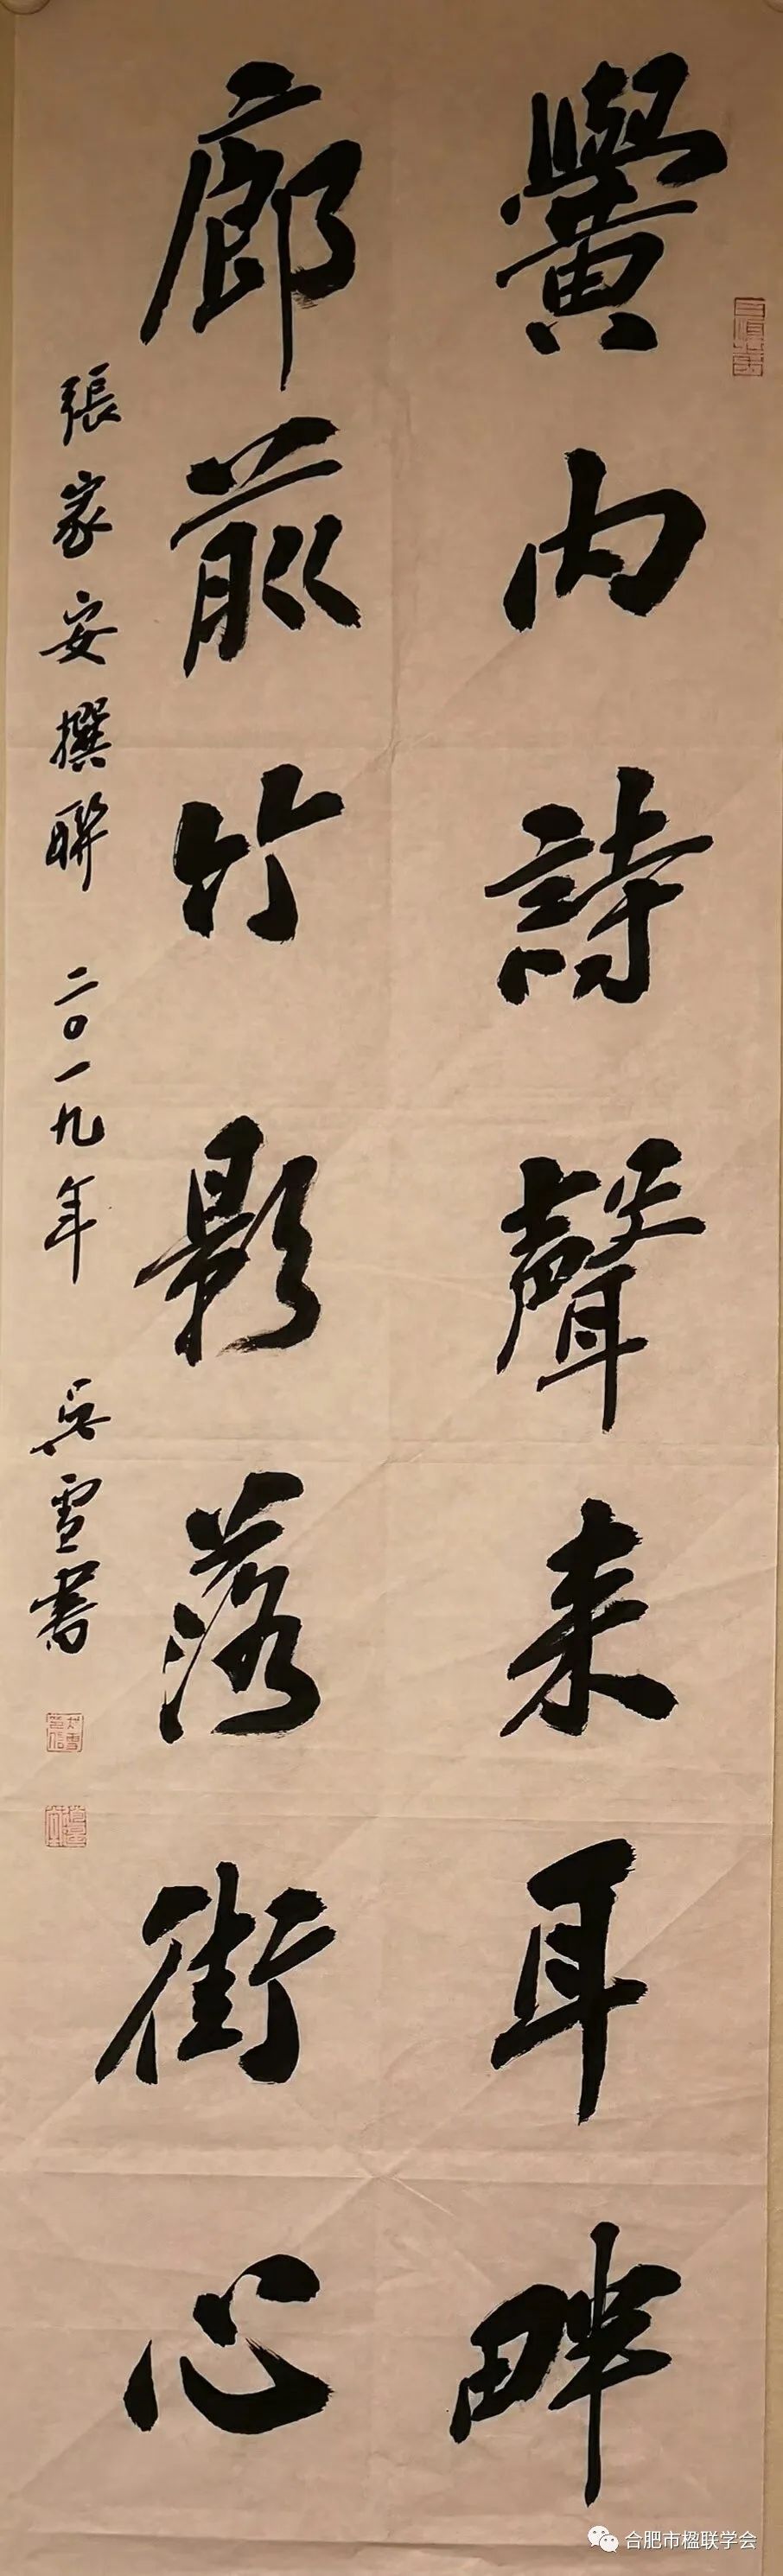 黌内詩聲来耳畔
廊前竹影落街心
張家安撰聯 二〇一九年 吴雪書
合肥市楹联学会